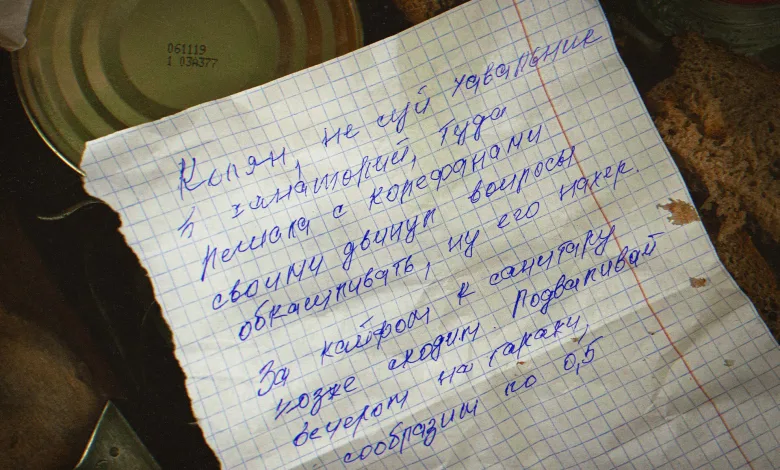 061119
1 03A377
Копян, не суй хавальник
в санаторий, туда
решала с корефанами
своими двинул вопросы
обкашливать, ну его нахер.
За кайфом к санитару
позже сходим. Подваливай
вечером на гаражи,
сообразим по 0,5